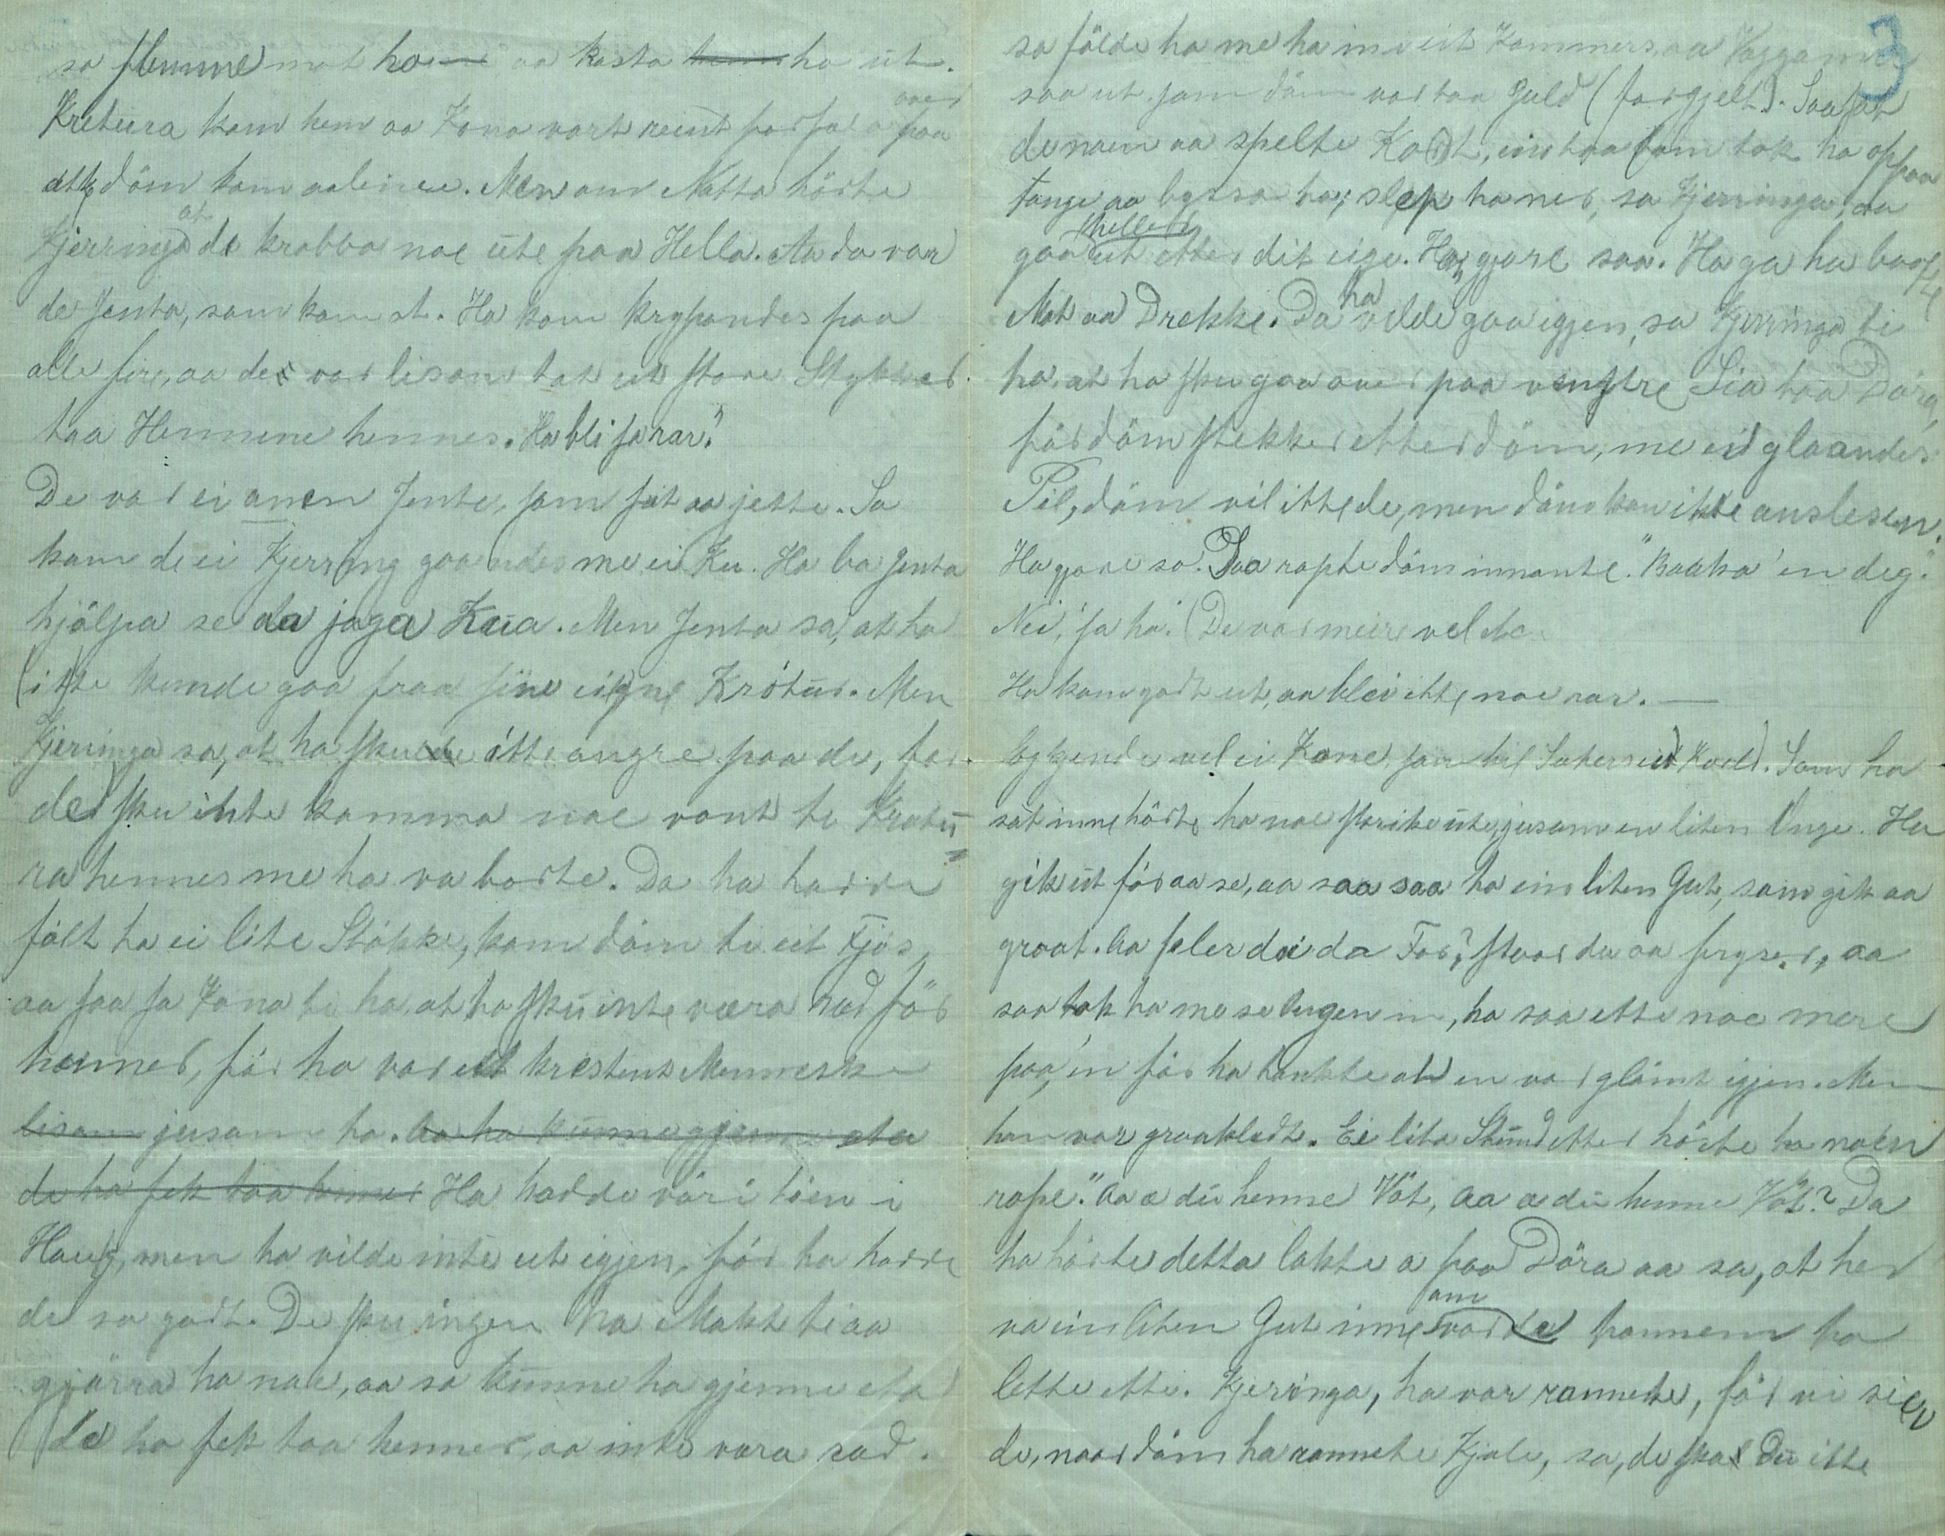 so slemme mot ho aa kasta ho ut.
Kretura kom hem aa Kona vart reint forfæra over paa
atte döm kom aaleine. Men om Natta hörte
Kjerringa at de krabba noe ute paa Hella. Aa da var
de Jenta, som kom at. Ha kom krypandes paa
alle fire, aa de var lisom tat ut store Stykker
taa Hennene hennes. Ha bli sa rar."
De var ei anen Jente, som sat aa jette. Sa
kom de ei Kjerring gaaendes me ei Ku. Ha ba Jenta
hjälpa se aa jaga Kua. Men Jenta sa, at ha
itte kunde gaa fraa sine eigne Krötur. Men
Kjeringa sa, at ha skulde itte angre paa de, for
de sku inte komma noe vont te Krötu-
ra hennes me ha va borte. Da ha hadde
fölt ha ei lite Stökke, kom döm te eit Fjös,
aa saa sa Kona te ha, at ha sku inte være ræd för
henner, för ha var eit krestent Menneske
lisom jusom ha. Aa ha kunne gjenne eta
de ha fek taa henner Ha hadde väri tien i
Haug, men ha vilde inte ut igjen, för ha hadde
de so godt. De sku ingen ha Makt te aa
gjärra ha noe, aa so kunne ha gjenne eta
de ha fek taa henner, aa inte vara rad.
3
so földe ha me ha inn eit Kammers, aa Veggame
saa ut som döm var taa Guld (forgjelt). Saa sat
de noen aa spelte Kort, ein taa dom tok ha op paa
fange aa byssa ha; slep ha ned, sa Kjerringa, aa
gaa heller ut etter dit eige. Han gjore saa. Ha ga ha baade
Mat aa Drekke. Da ha vilde gaa igjen, sa Kjerringa te
ha, at ha sku gaa over paa venstre Sia taa Döra,
för döm stekker etter döm, me eid gloandes
Pil, döm vil itte de, men döm kan ikke anslesen.
Ha gjore so. Daa ropte döm innante. "Raaka' en deg."
Nei, sa ha. (De var meire vel de.
Ha kom godt ut, aa blei itte noe rar. —
Eggjende vel ei Kone, som hel Sæters eid Kveld. Som ha
sat inne hörte ha noe skrike ute, jusom en liten Onge. Ha
gik ut för aa se, aa saa saa ha ein liten Gut, som gik aa
graat. Aa feler dei da Far, staar du aa fryser, aa
saa tok ha me se Ongen in, ha saa ette noe mere
paa 'in för ha tænkte at en var glömt igjen. Men
han var graakledt. Ei lita Stund etter hörte ha noen
rope". Aa æ du henne Vöt, aa æ du henne Vöt? Da
ha hörte detta lokte a paa Döra aa sa, at her
va ein liten Gut inne, om var de hannem ha
lette ette. Kjeringa, ha var rannete, för vi sier
de, naar döm ha rannete Kjole, sa, de skal Du itte